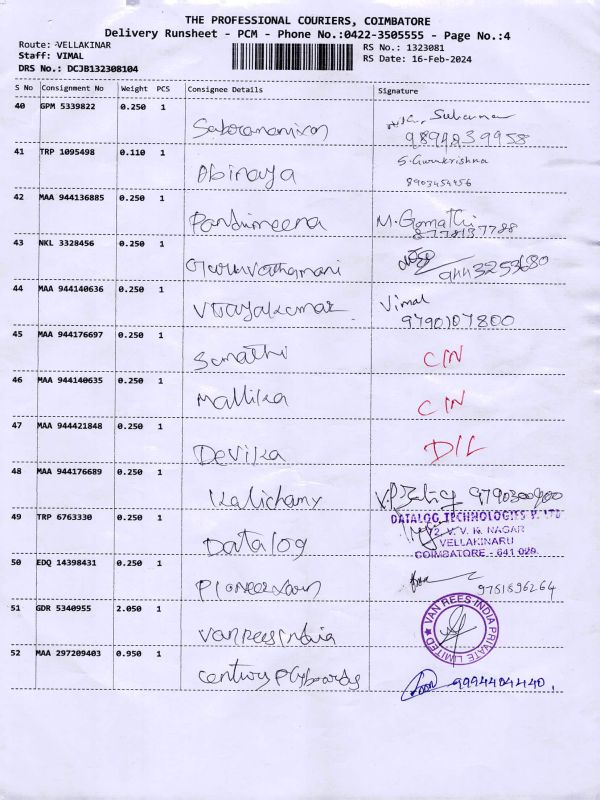 THE PROFESSIONAL COURIERS, COIMBATORE
Delivery Runsheet - PCM - Phone No.:0422-3505555 - Page No.:4
Route: VELLAKINAR
RS No.: 1323081
Staff: VIMAL
RS Date: 16-Feb-2024
DRS No.: DCJB132308104
S No Consignment No Weight PCS Consignee Details Signature
40 GPM 5339822 0.250 1
41 TRP 1095498 0.110 1 Abinaya S. Gurukrishna
8903454456
42 MAA 944136885 0.250 1 Pandimeena M. Gomathi
8778137788
43 NKL 3328456 0.250 1 Guruvathamani 9443253680
44 MAA 944140636 0.250 1 Vijayakumar Vimal
9790107800
45 MAA 944176697 0.250 1 Sumathi C/N
46 MAA 944140635 0.250 1 Mallika C/N
47 MAA 944421848 0.250 1 Devika D/L
48 MAA 944176689 0.250 1 Kalichamy
49 TRP 6763330 0.250 1 Datalog DATALOG TECHNOLOGIES P. LTD
V. V. R. NAGAR
VELLAKINARU
COIMBATORE - 641 029
50 EDQ 14398431 0.250 1 9751696264
51 GDR 5340955 2.050 1 Vanrees India VAN REES INDIA PRIVATE LIMITED
52 MAA 297209403 0.950 1 Century Plyboards 9994404440